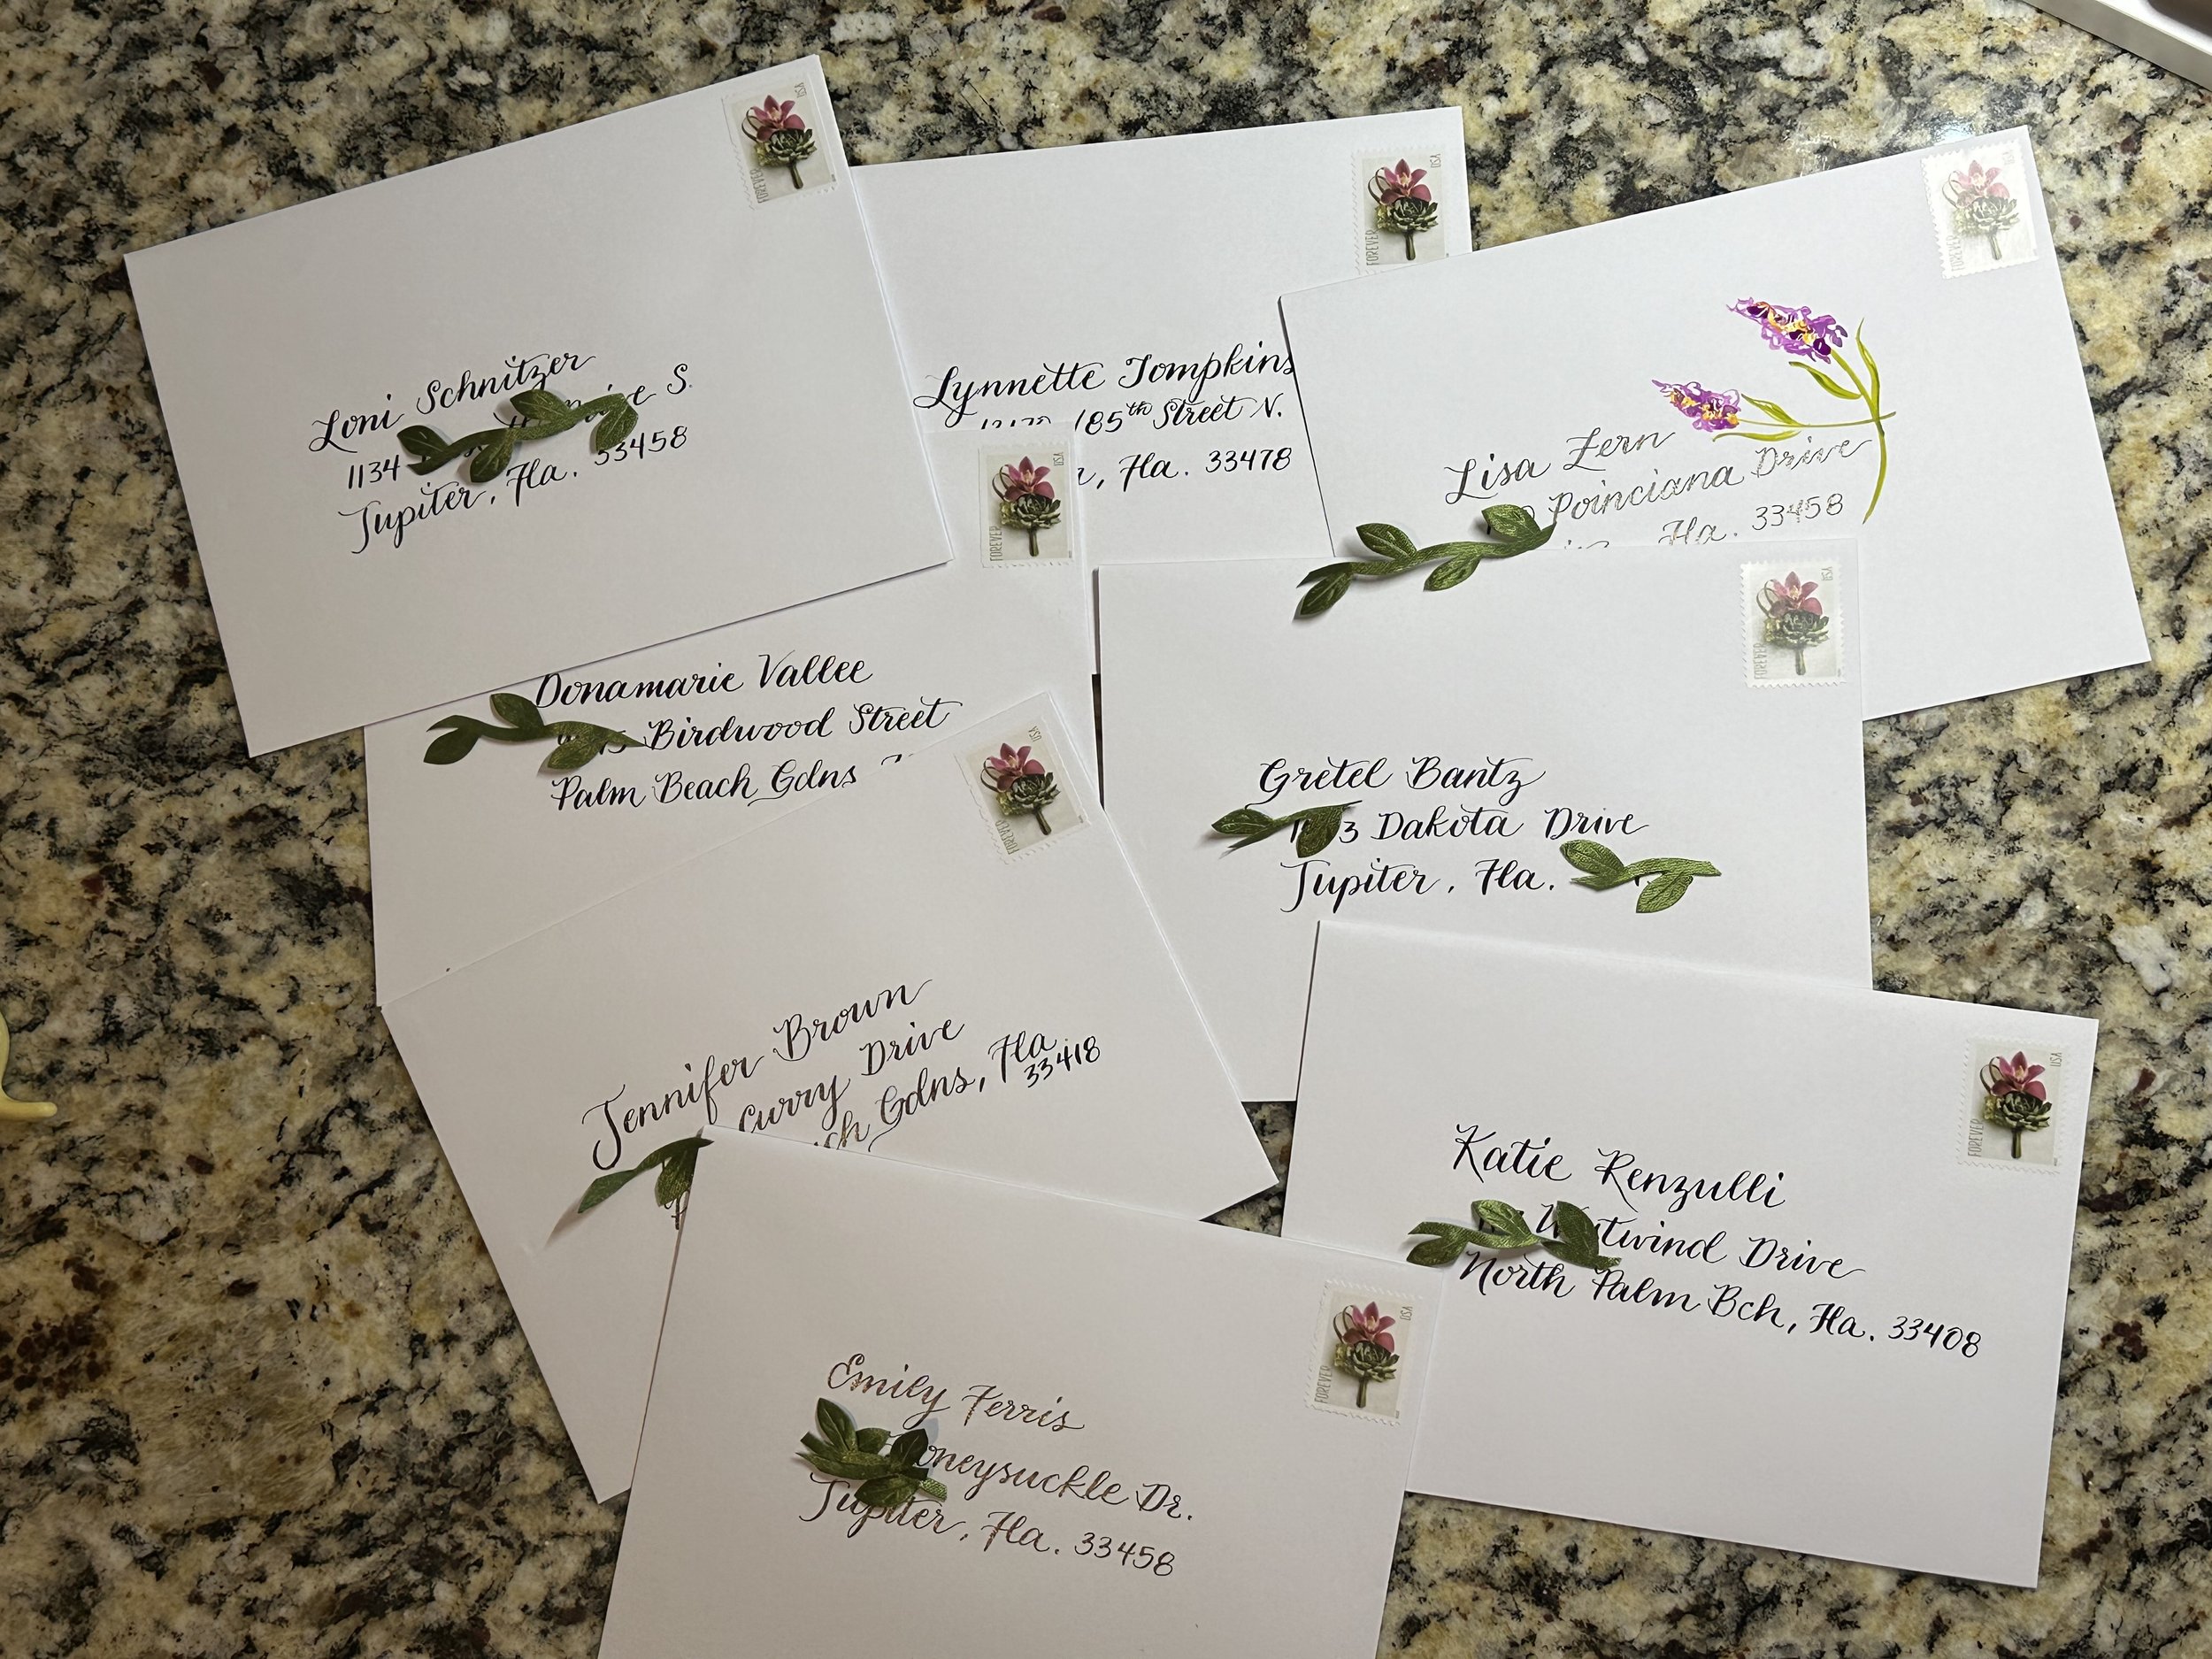 Loni Schnitzer
1134 S.
Jupiter, Fla. 33458
FOREVER USA
Lynnette Tompkins
185th Street N.
, Fla. 33478
FOREVER USA
Lisa Zern
Poinciana Drive
Fla. 33458
FOREVER USA
Donamarie Vallee
Birdwood Street
Palm Beach Gdns
FOREVER USA
Gretel Bantz
3 Dakota Drive
Jupiter, Fla.
FOREVER USA
Jennifer Brown
Curry Drive
Gdns, Fla.
33418
FOREVER USA
Katie Renzulli
Drive
North Palm Bch, Fla. 33408
FOREVER USA
Emily Ferris
oneysuckle Dr.
Jupiter, Fla. 33458
FOREVER USA